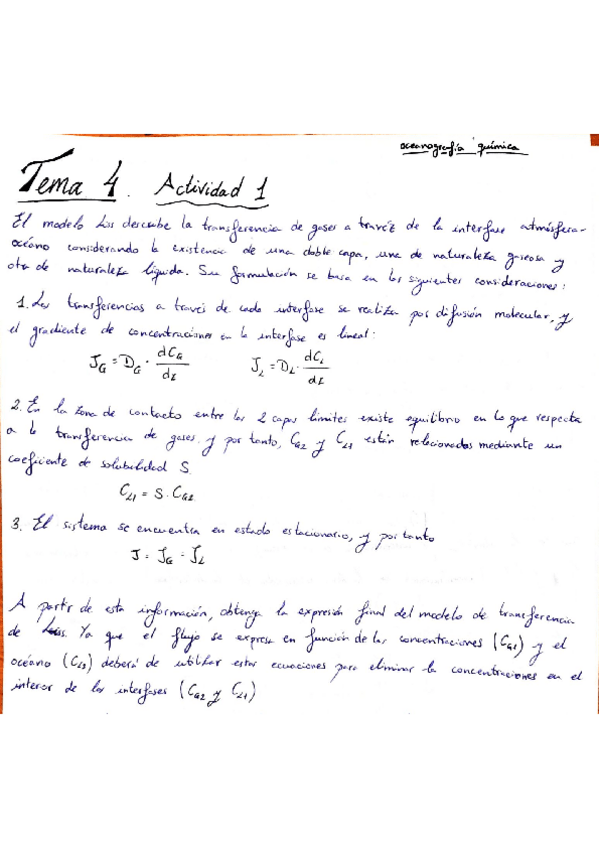 oceanografía química
Tema 4. Actividad 1
El modelo Liss describe la transferencia de gases a través de la interfase atmósfera-
océano considerando la existencia de una doble capa, una de naturaleza gaseosa y
otra de naturaleza líquida. Su formulación se basa en las siguientes consideraciones:
1. Las transferencias a través de cada interfase se realiza por difusión molecular, y
el gradiente de concentraciones en la interfase es lineal:
J_G = D_G · dC_G/dz   J_L = D_L · dC_L/dz
2. En la zona de contacto entre las 2 capas límites existe equilibrio en lo que respecta
a la transferencia de gases, y por tanto, C_G2 y C_L1 están relacionados mediante un
coeficiente de solubilidad S.
C_L1 = S · C_G2
3. El sistema se encuentra en estado estacionario, y por tanto
J = J_G = J_L
A partir de esta información, obtenga la expresión final del modelo de transferencia
de Liss. Ya que el flujo se expresa en función de las concentraciones (C_G1) y el
océano (C_L2) deberá de utilizar estas ecuaciones para eliminar la concentraciones en el
interior de las interfases (C_G2 y C_L1)